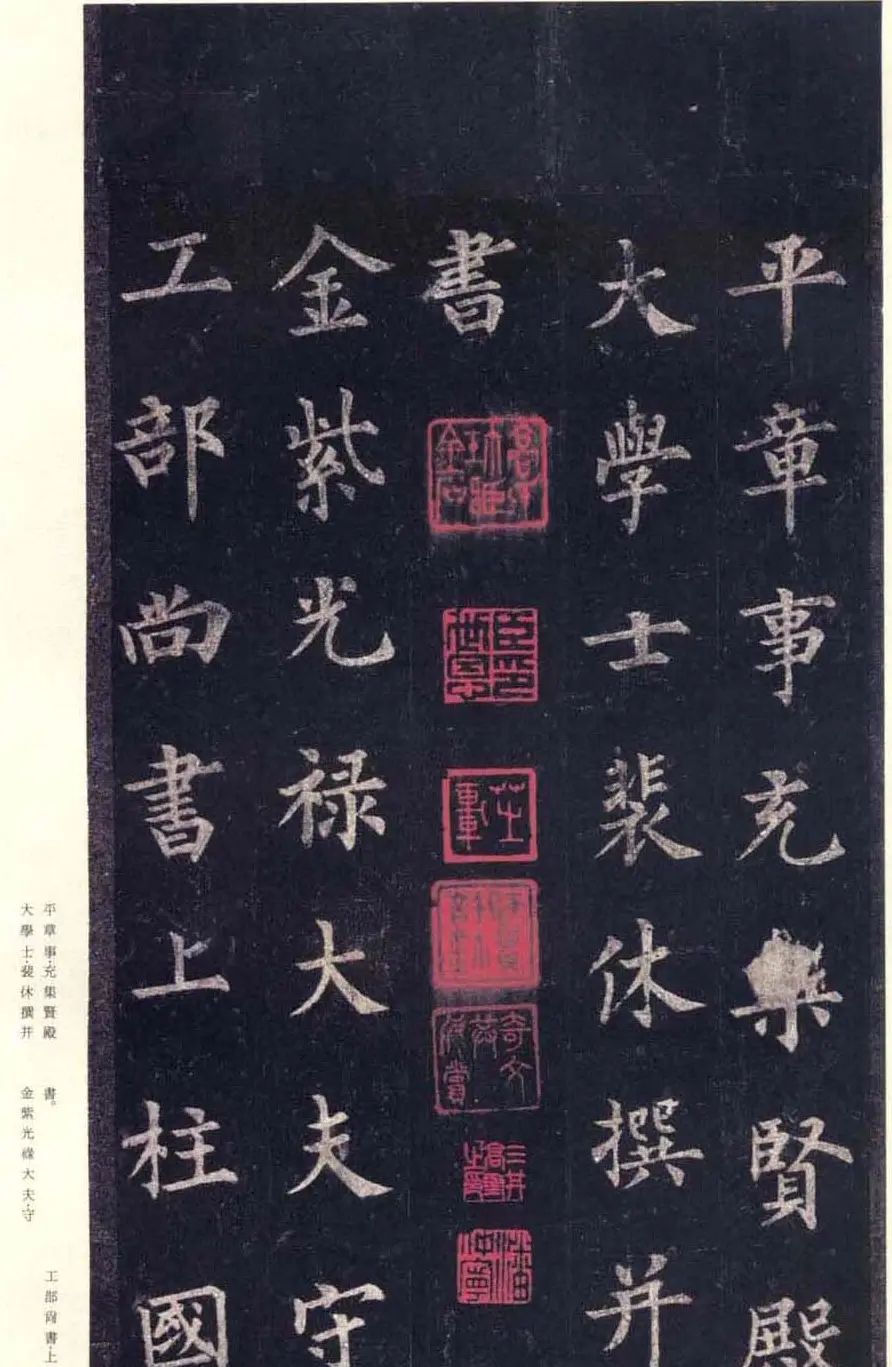 平章事充集賢殿
大學士裴休撰并
書
金紫光祿大夫守
工部尚書上柱國
奇文共欣賞
平章事·充集賢殿
大學士·裴休撰并
書。
金紫光祿大夫·守
工部尚書·上